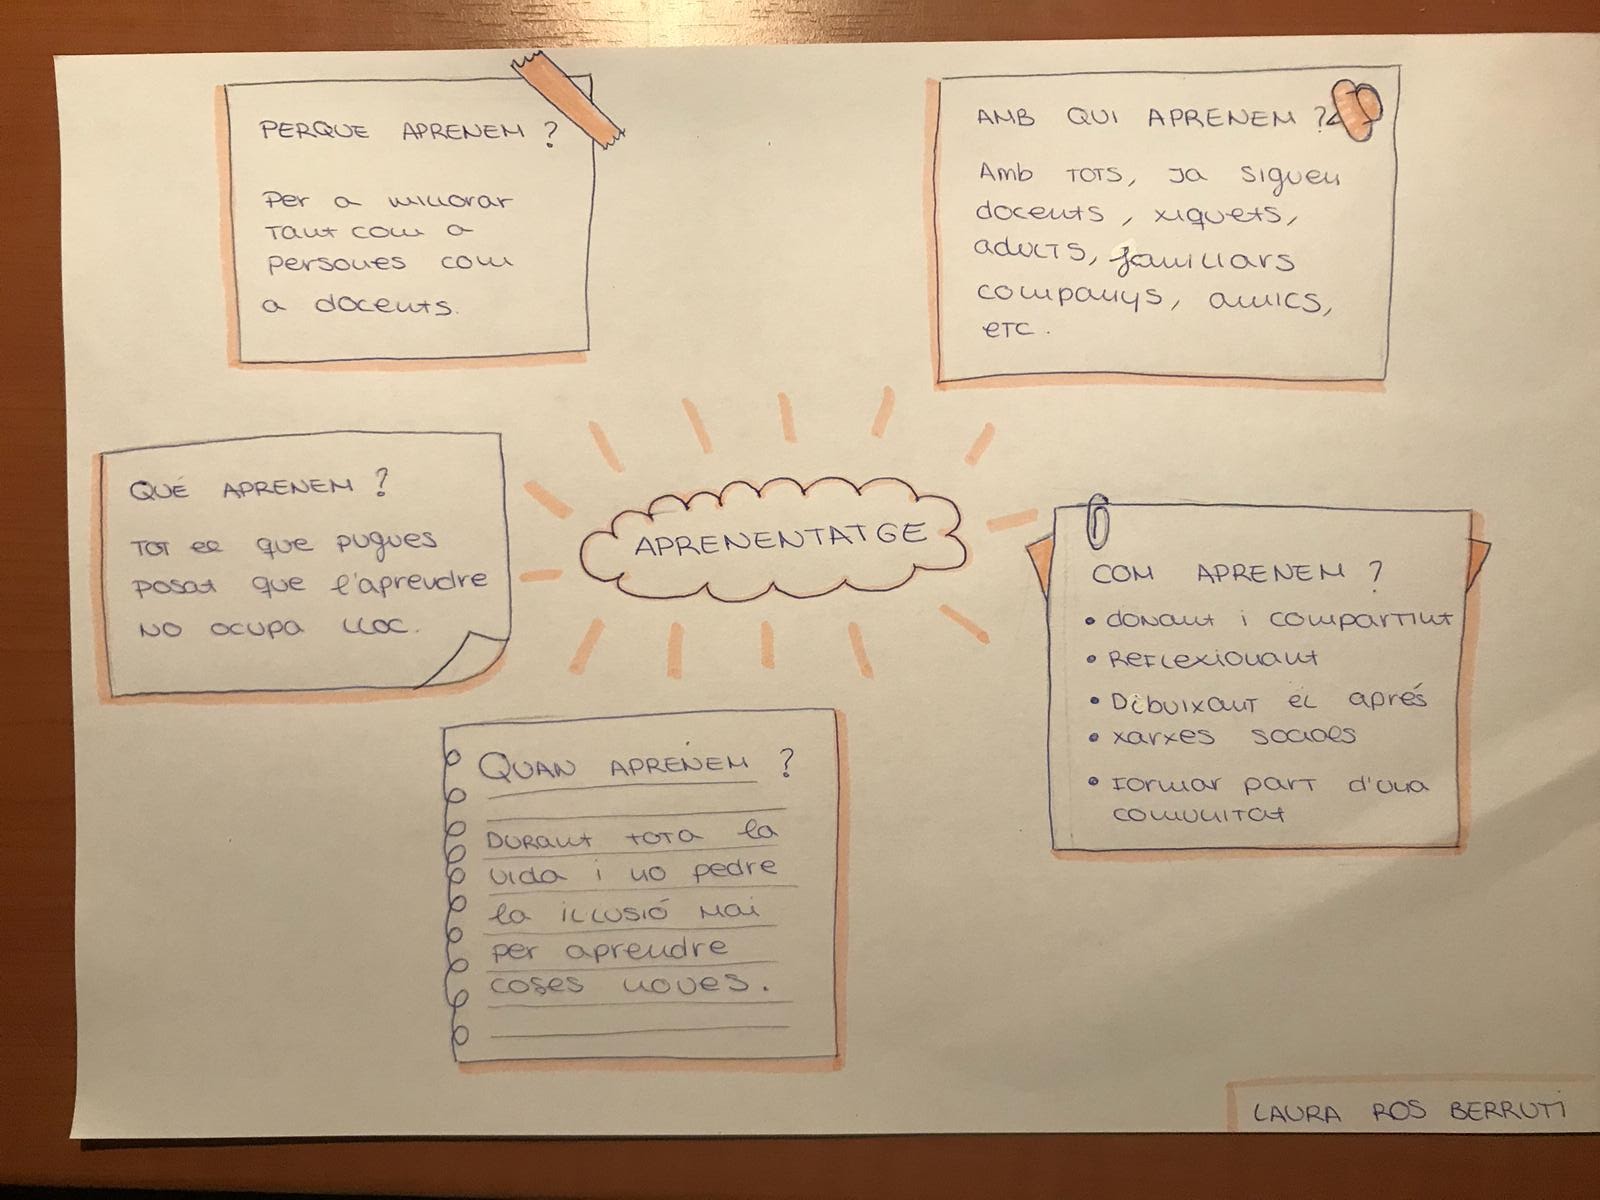 PERQUE APRENEM ?
Per a millorar
Tant com a
persones com
a docents.
AMB QUI APRENEM ?
Amb TOTS, ja sigueu
docents, xiquets,
adults, familiars
companys, amics,
etc.
QUÉ APRENEM ?
TOT el que pugues
posat que l'aprendre
NO OCUPA LLOC.
APRENENTATGE
COM APRENEM ?
• donant i compartint
• Reflexionant
• Dibuixant el aprés
• xarxes socials
• Formar part d'una
comunitat
QUAN APRENEM ?
Durant tota la
vida i no pedre
la il·lusió mai
per aprendre
coses noves.
LAURA ROS BERRUTI